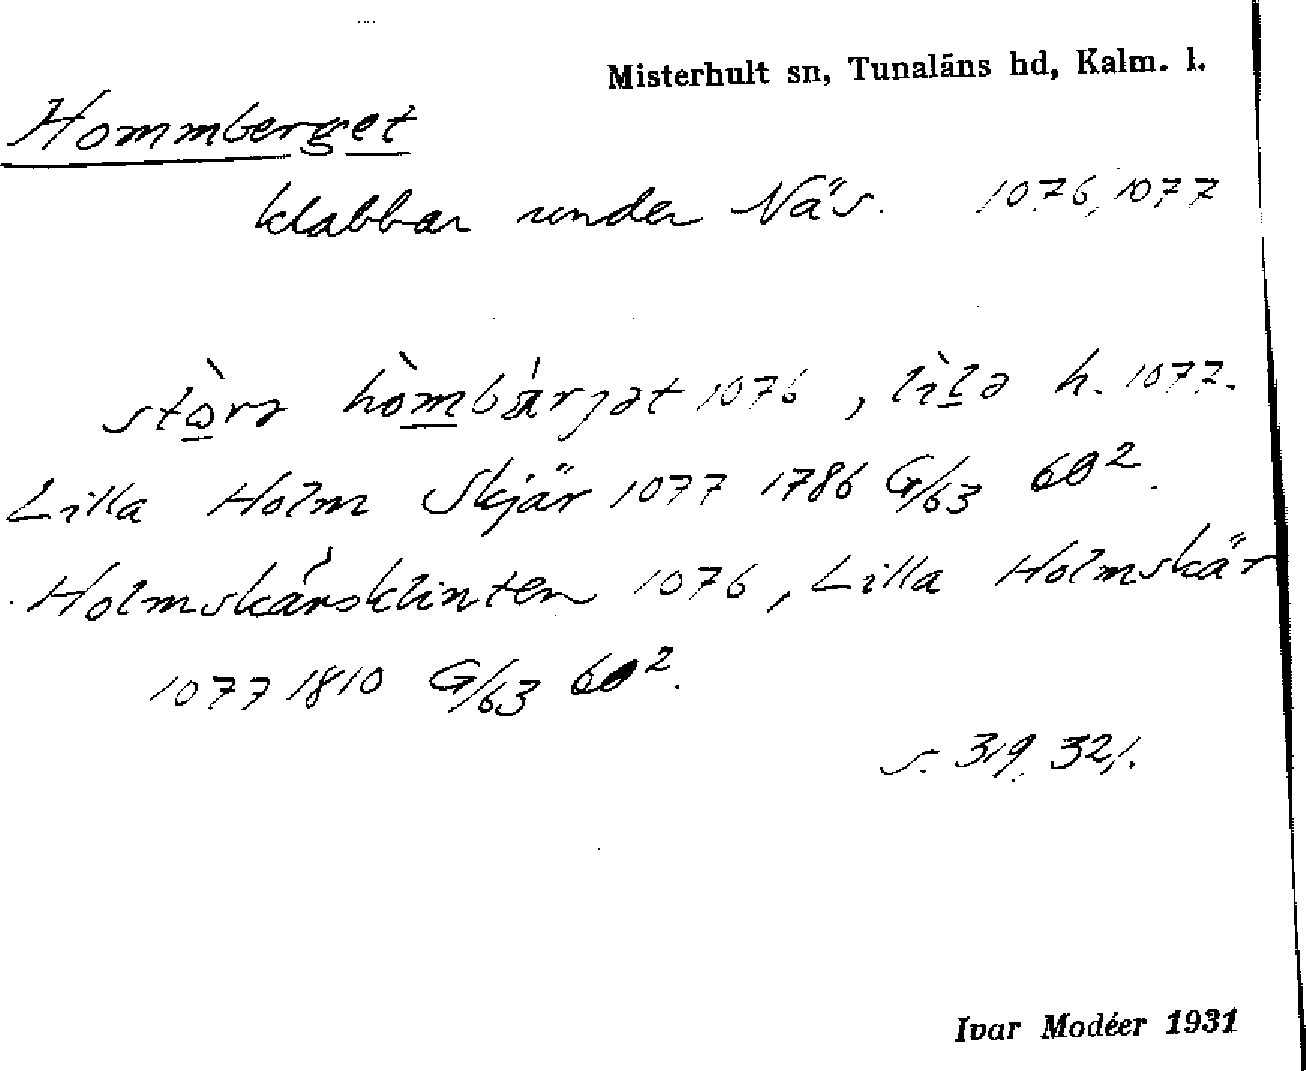 Misterhult sn, Tunaläns hd, Kalm. l.
Hommberget
klabbar under Näs. 1076, 1077
stòra hòmbärjət 1076, lìlə h. 1077.
Lilla Holm Skjär 1077 1786 G/63 60².
Holmskärsklinten 1076, Lilla Holmskär
1077 1810 G/63 60².
s. 319, 321.
Ivar Modéer 1931